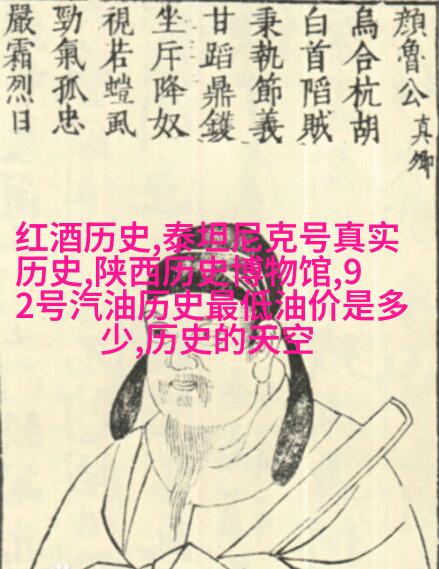 顔魯公真卿
烏合杭胡
白首陷賊
秉執節義
甘蹈鼎鑊
坐斥降奴
視若螘虱
勁氣孤忠
嚴霜烈日
红酒历史,泰坦尼克号真实
历史,陕西历史博物馆,9
2号汽油历史最低油价是多
少,历史的天空